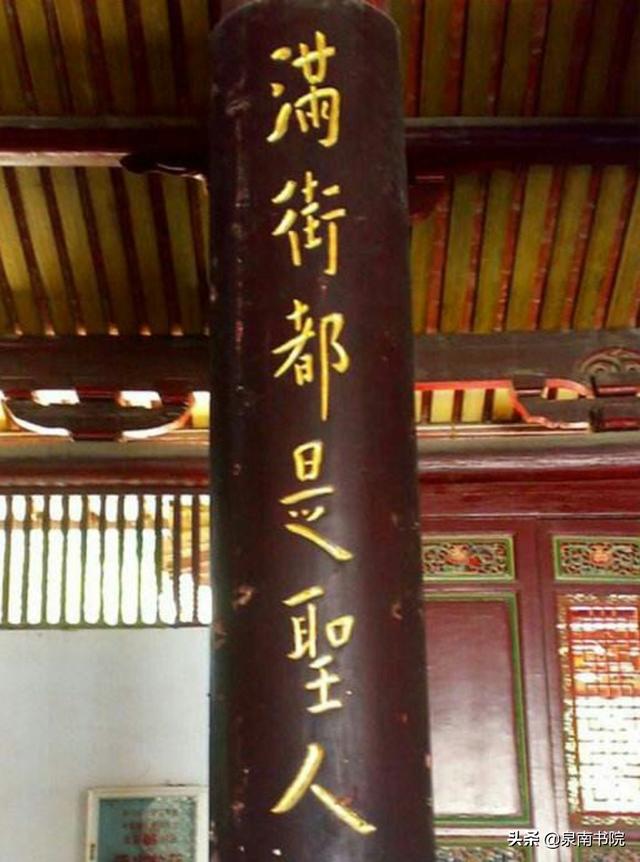 滿街都是聖人
头条 @泉南书院